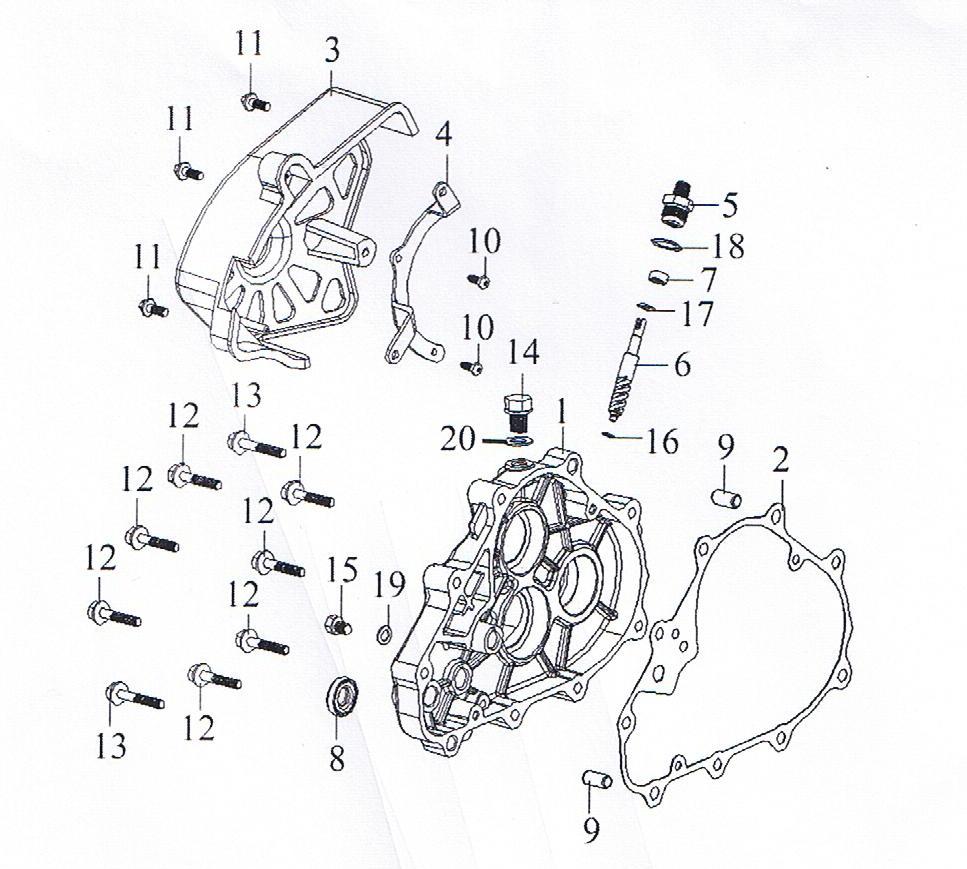 11
3
11
4
5
10
18
11
7
17
10
14
6
13
12
12
20
1
16
9
2
12
12
12
15
19
12
13
12
8
9